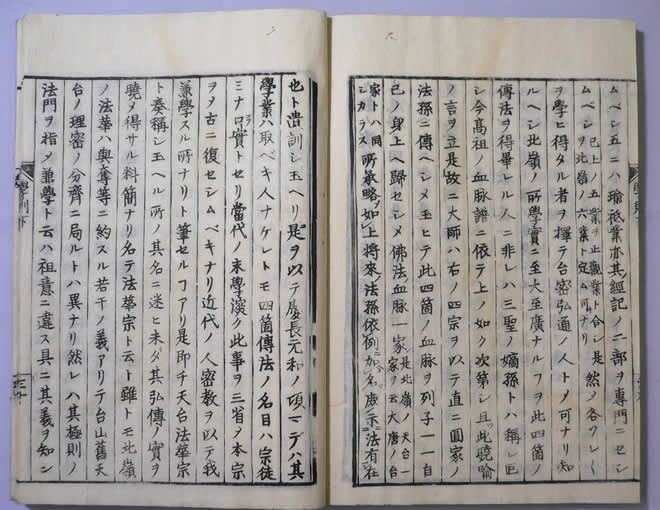 ムベシ五ニハ瑜祗業亦其經記ノ二部ヲ專門ニセシ
ムベシ已上ノ五業ヲ止觀業ト合シ是然メ各ワレ〱
此北嶺ノ六業ト定ム可ナリ
ヲ學ヒ得タル者ヲ擇テ台密弘通ノ人トメ可ナリ知
ルヘシ北嶺ノ所學實ニ至大至廣ナルヿヲ此四箇ノ
傳法ヲ得畢レル人ニ非レハ三聖ノ嫡孫トハ稱シ叵
シ今高祖ノ血脉譜ニ依テ上ノ如ク次第シ且此曉喩
ノ言ヲ立是故ニ大師ハ右ノ四宗ヲ以テ直ニ圓家ノ
法孫ニ傳ヘシメ玉ヒテ此四箇ノ血脉ヲ列子一一自
己ノ身上ヘ歸セシメ佛法血脉一家是北嶺ノ天台一
家ヲ云大唐ノ台
家トハ同
シカラス所承略如上將來法孫依例加名庶示法有在
也ト遺訓シ玉ヘリ是ヲ以テ慶長元和ノ頃マデハ其
學業ハ取ベキ人ナケレトモ四箇傳法ノ名目ハ宗徒
ミナ口實トセリ當代ノ末學深ク此事ヲ三省ノ本宗
ヲメ古ニ復セシムベキナリ近代ノ人密教ヲ以テ我
兼學スル所ナリト筆セルヿアリ是即チ天台法華宗
ト奏稱シ玉ヘル所ノ其名ニ迷ヒ未ダ其弘傳ノ實ヲ
曉メ得サル料簡ナリ名テ法華宗ト云ト雖トモ北嶺
ノ法華ハ與奪等ニ約スル若干ノ義アリテ台山舊天
台ノ理密ノ分齊ニ局ルトハ異ナリ然レハ其極則ノ
法門ヲ指メ兼學ト云ハ祖意ニ違ス具ニ其義ヲ知ン
學則下